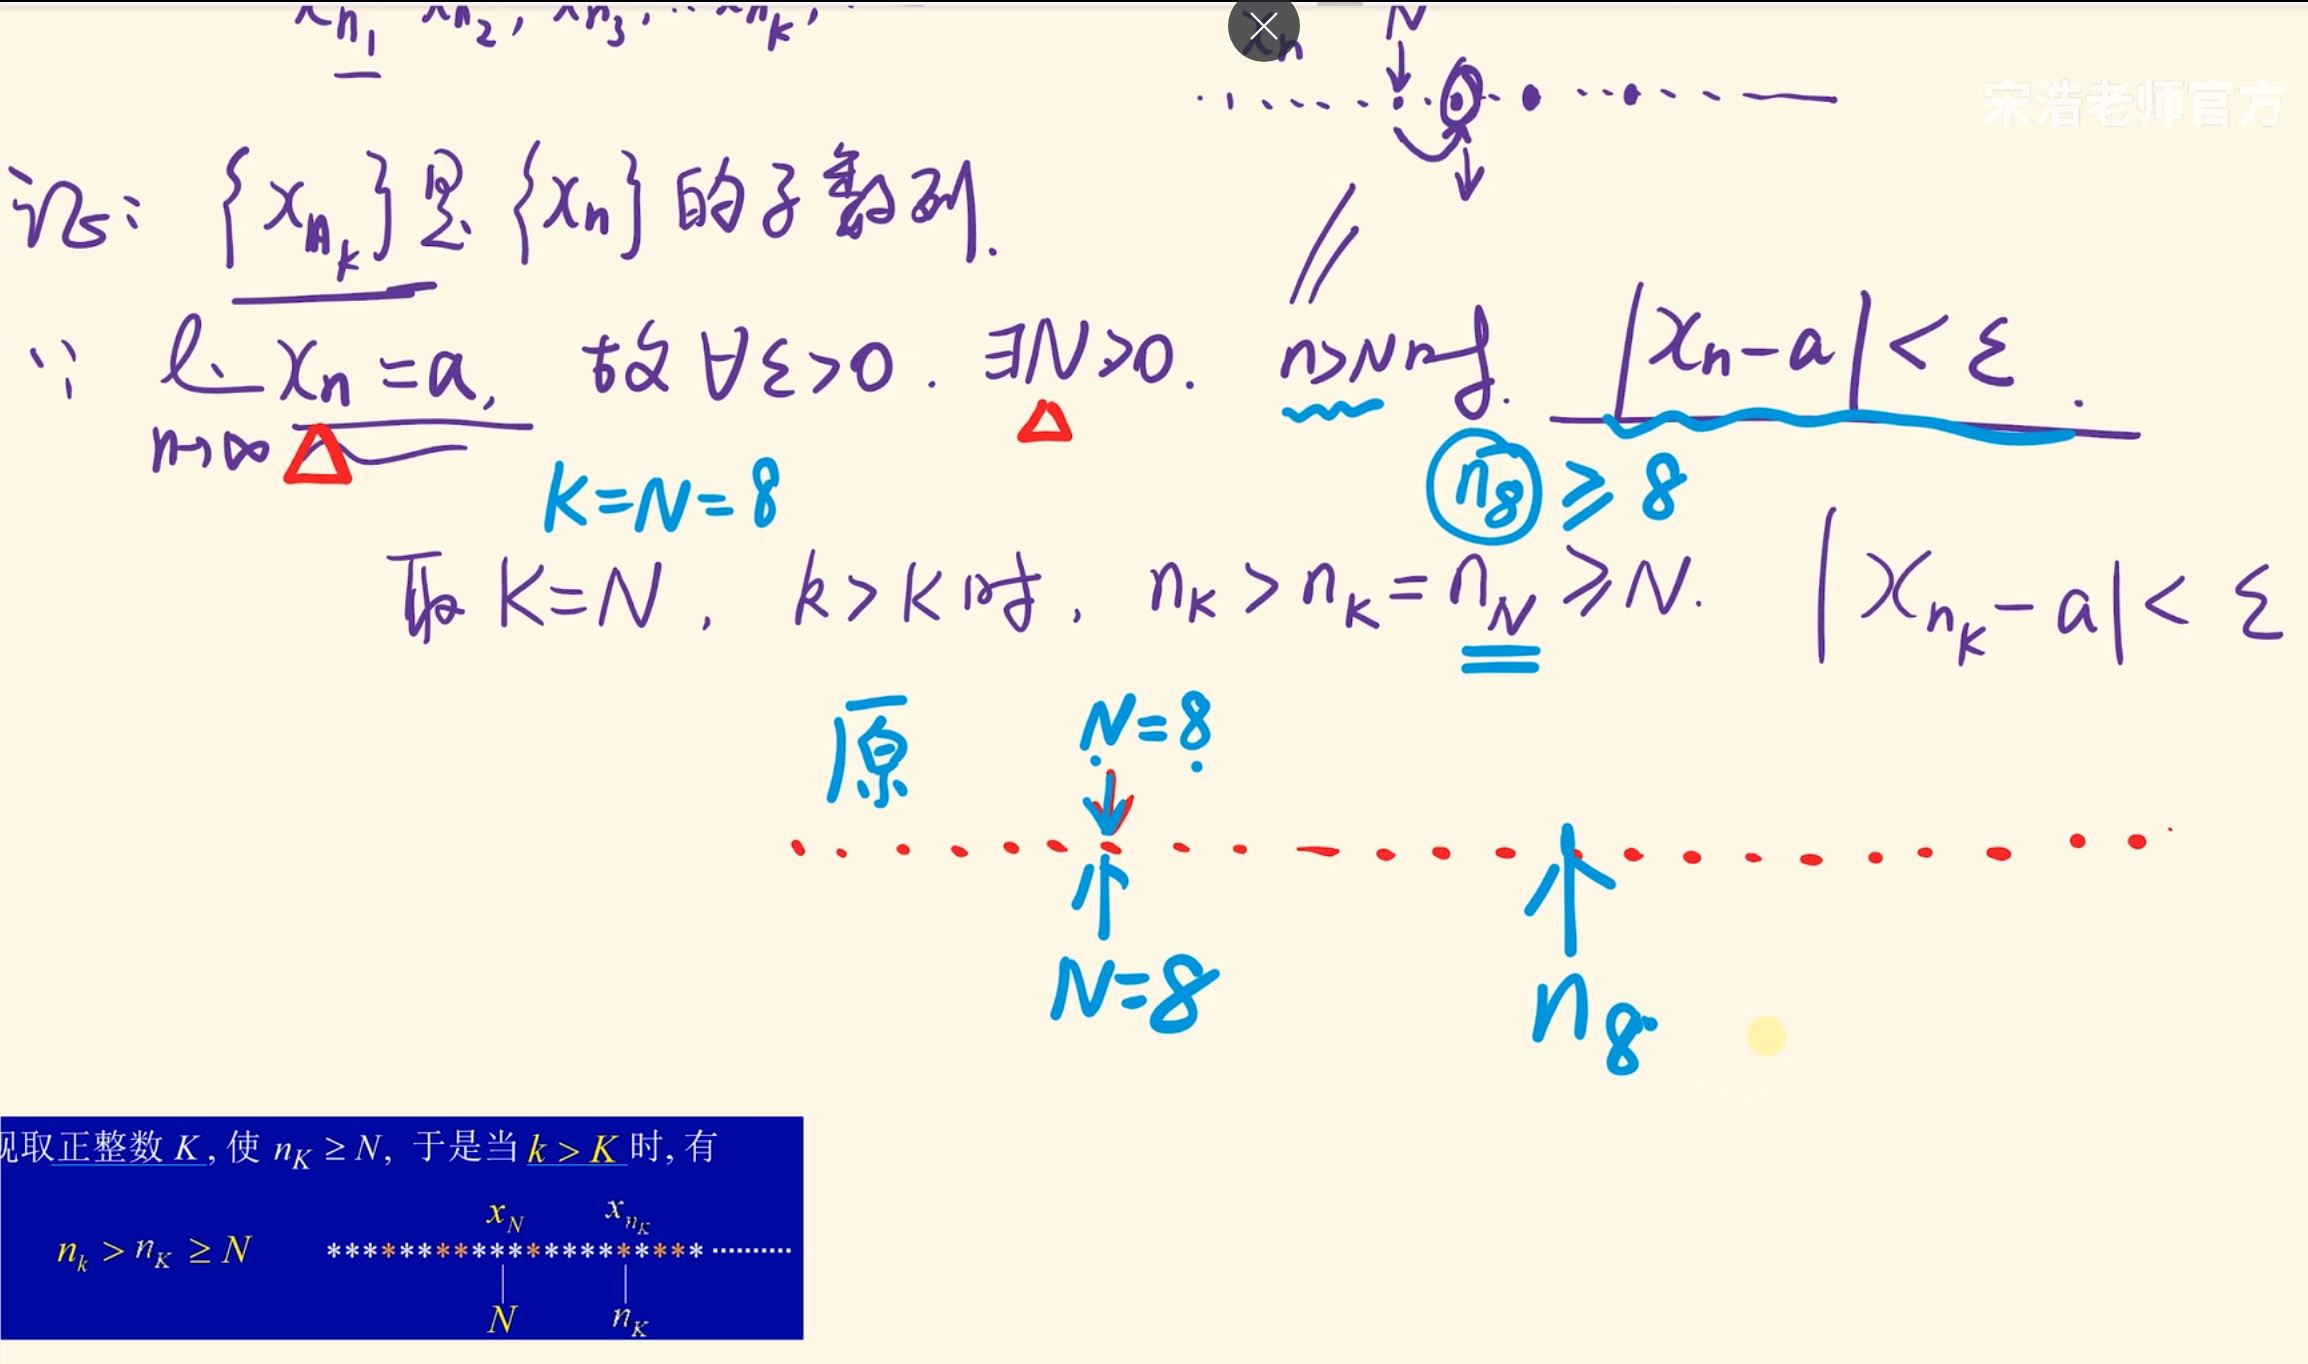 x_{n_1} x_{n_2}, x_{n_3}, … x_{n_k},
x_n
N
宋浩老师官方
证: {x_{n_k}} 是 {x_n} 的子数列.
∵ lim x_n = a, 故 ∀ε>0. ∃N>0. n>N时. |x_n-a|<ε.
n→∞
K=N=8
n_8 ≥ 8
取 K=N, k>K时, n_k > n_K = n_N ≥ N. |x_{n_k}-a|<ε
原
N=8
N=8
n_8
现取正整数 K, 使 n_K ≥ N, 于是当 k > K 时, 有
x_N x_{n_K}
n_k > n_K ≥ N
*********************··········
N n_K